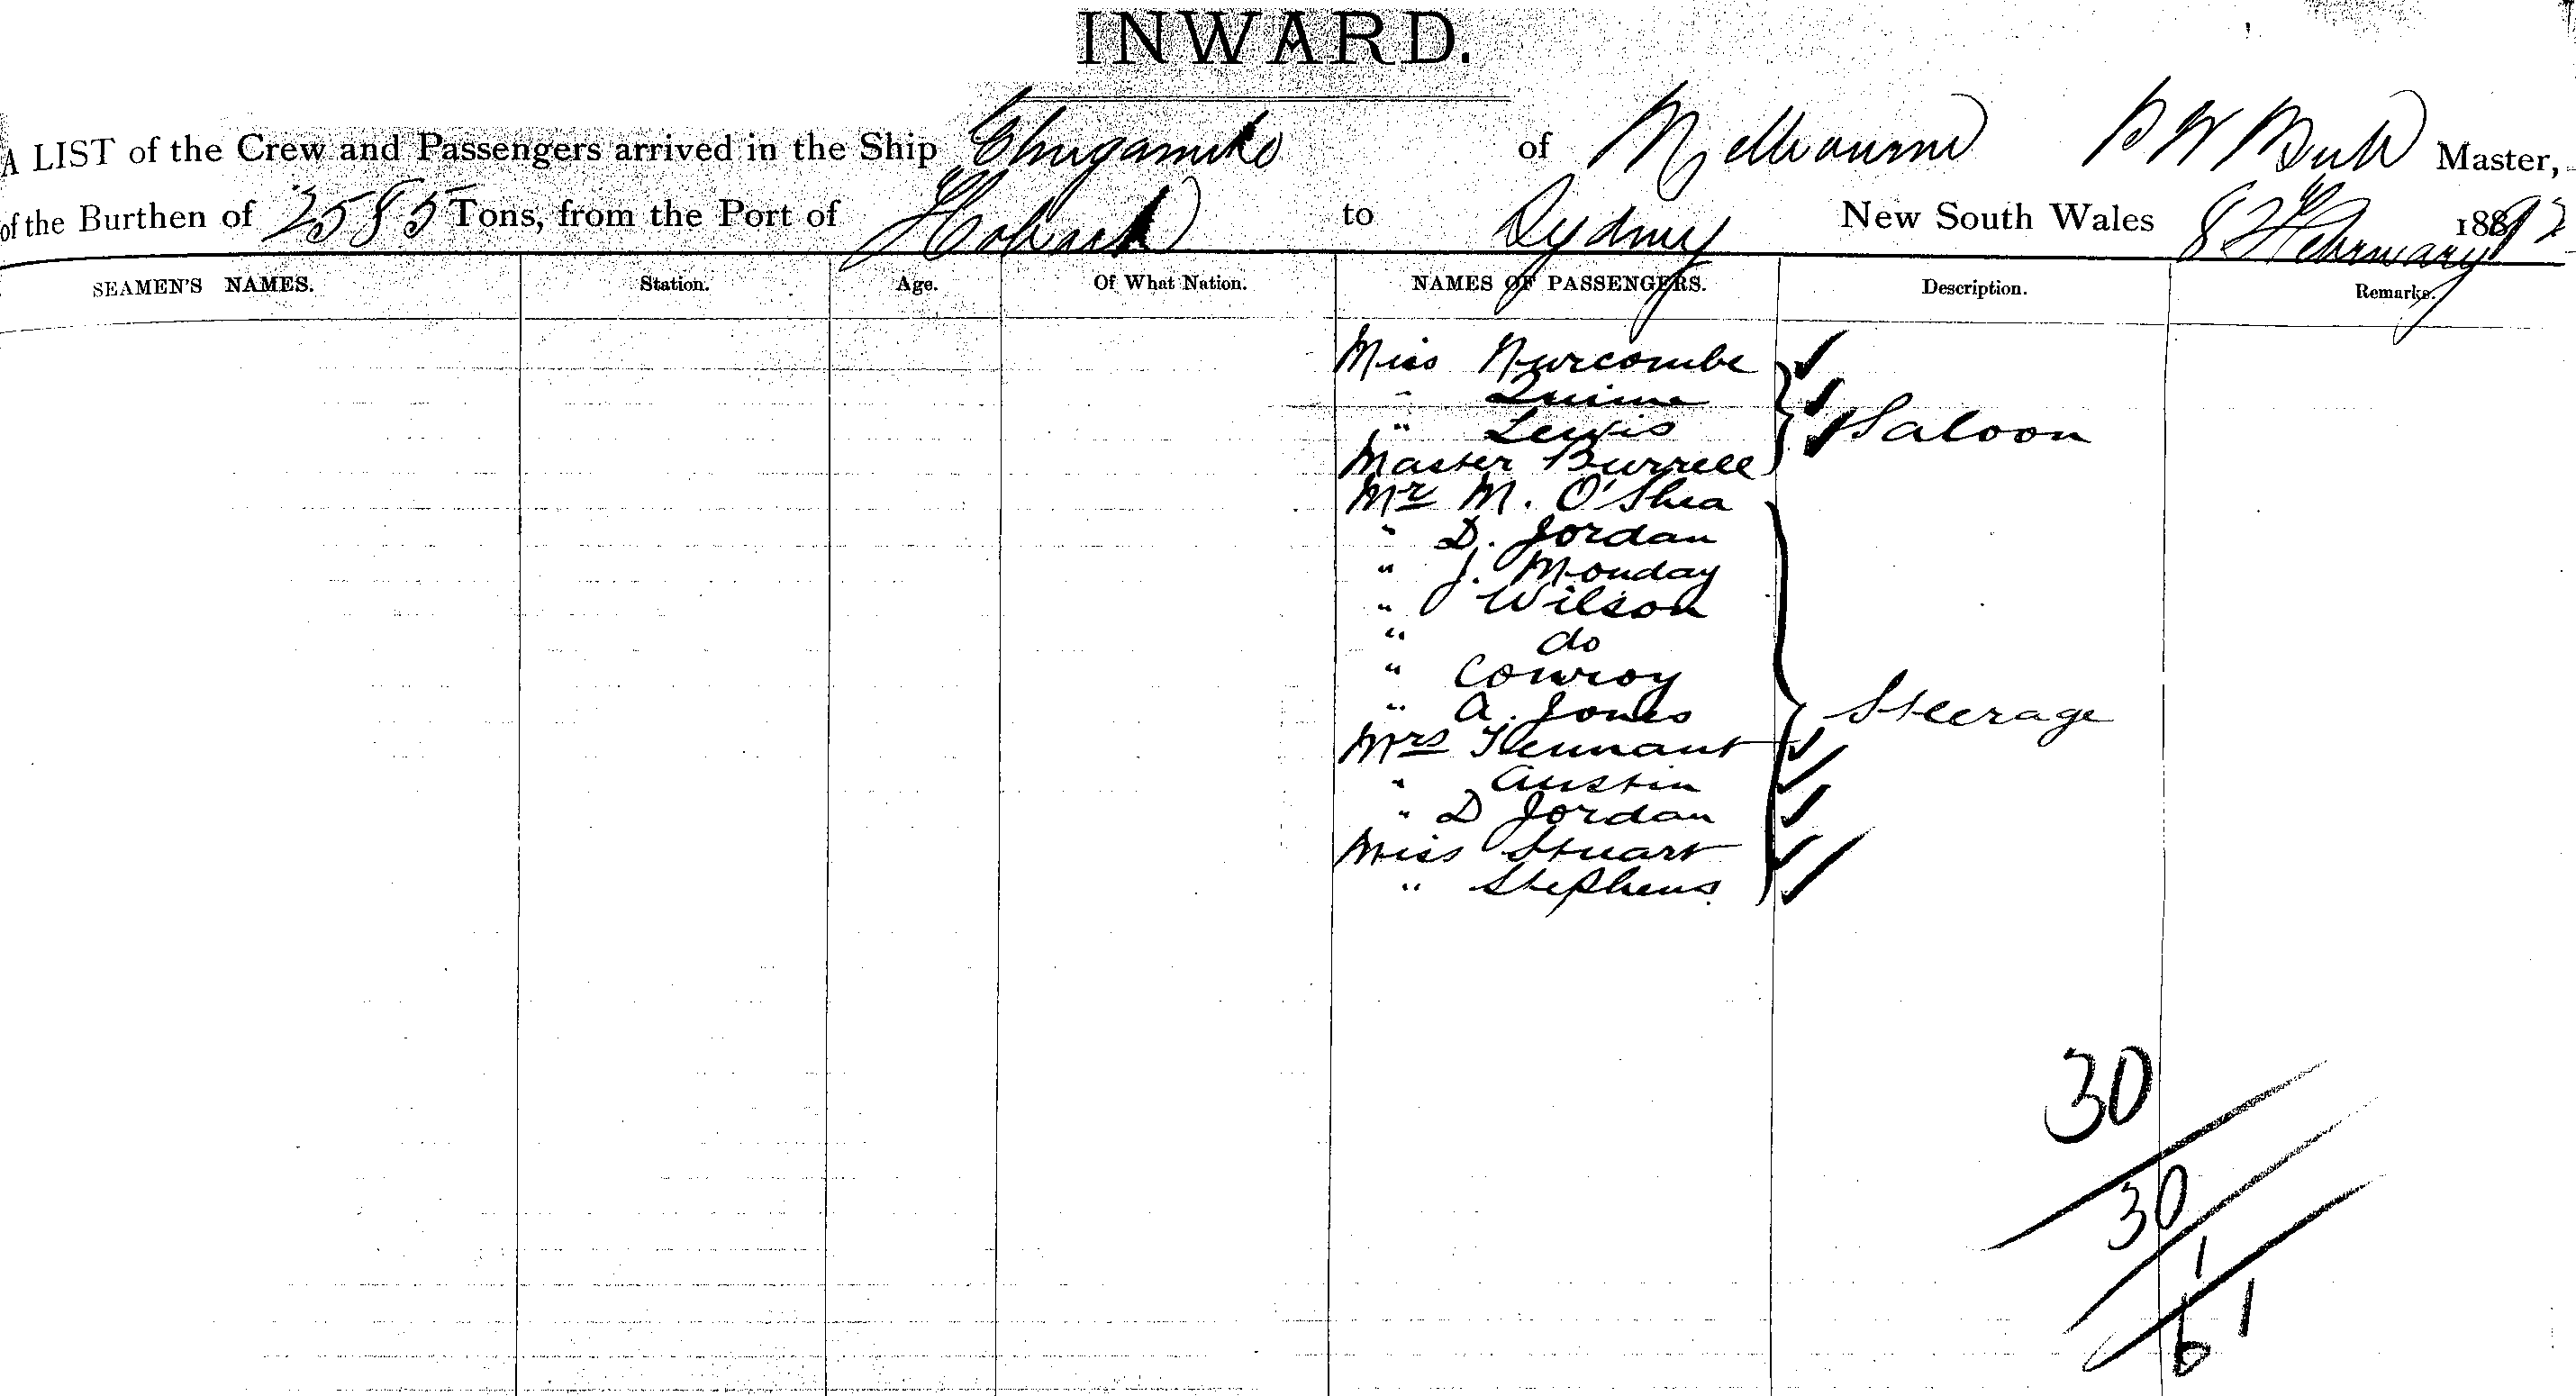 INWARD.
A LIST of the Crew and Passengers arrived in the Ship of Melbourne B W Bull Master,
of the Burthen of 2585 Tons, from the Port of Hobart to Sydney New South Wales 8 February 1892
SEAMEN'S NAMES. Station. Age. Of What Nation. NAMES OF PASSENGERS. Description. Remarks.
Miss Nurcombe
" Quinn
" Lewis Saloon
Master Burrell
Mr M. O'Shea
" D. Jordan
" J. Monday
" Wilson
" do
" Conroy
" A. Jones Steerage
Mrs Tennant
" Austin
" D Jordan
Miss Stuart
" Stephens
30
30
1
61